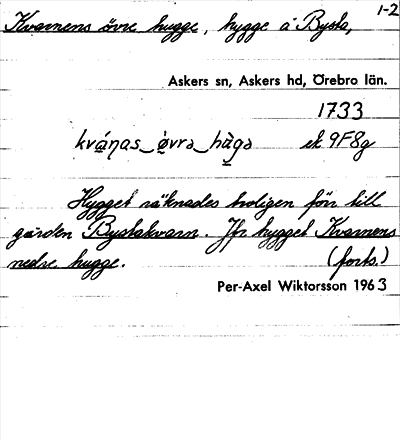 1-2
Kvarnens övre hugge, hygge å Bysta,
Askers sn, Askers hd, Örebro län.
1733
kvá̱ŋas‿ø̱̀vrə‿hù̱gə ek 9F8g
Hygget räknades troligen förr till
gården Bystakvarn. Jfr hygget Kvarnens
nedre hugge. (forts.)
Per-Axel Wiktorsson 1963